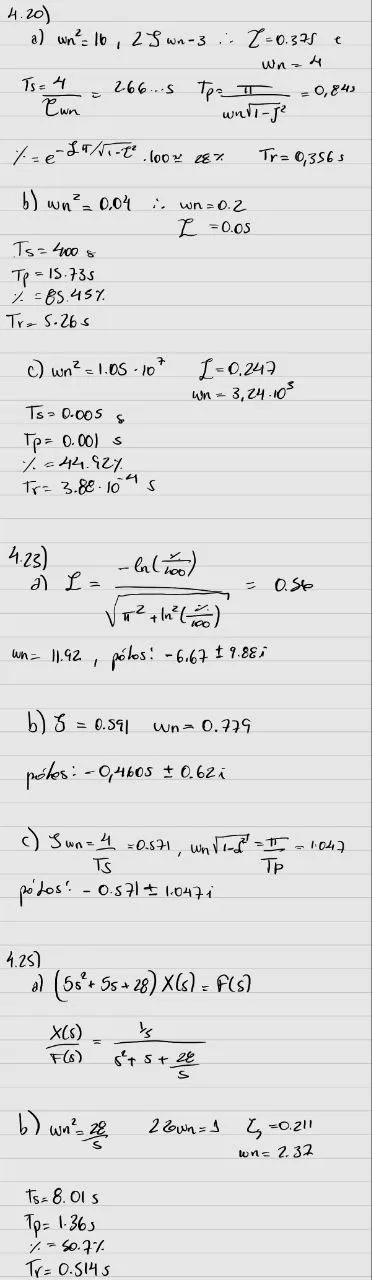 4.20)
a) wn² = 16 , 2ζwn = 3 ∴ ζ = 0.375 e
wn = 4
Ts = 4/ζwn = 2.66...s Tp = π/wn√1-ζ² = 0,84s
% = e^-ζπ/√1-ζ² . 100 ≈ 28% Tr = 0,356 s
b) wn² = 0.04 ∴ wn = 0.2
ζ = 0.05
Ts = 400 s
Tp = 15.73s
% = 85.45%
Tr = 5.26 s
c) wn² = 1.05 · 10⁷ ζ = 0,247
wn = 3,24·10³
Ts = 0.005 s
Tp = 0.001 s
% = 44.92%
Tr = 3.88·10⁻⁴ s
4.23)
a) ζ = -ln(%/100) / √π² + ln²(%/100) = 0.56
wn = 11.92 , pólos: -6,67 ± 9.88i
b) ζ = 0.591 wn = 0.779
pólos: -0,4605 ± 0.62i
c) ζwn = 4/Ts = 0.571 , wn√1-ζ² = π/Tp = 1.047
pólos: -0.571 ± 1.047i
4.25)
a) (5s² + 5s + 28) X(s) = F(s)
X(s)/F(s) = 1/5 / s² + s + 28/5
b) wn² = 28/5 2ζwn = 1 ζ = 0.211
wn = 2.37
Ts = 8.01 s
Tp = 1.36s
% = 50.7%
Tr = 0.514s